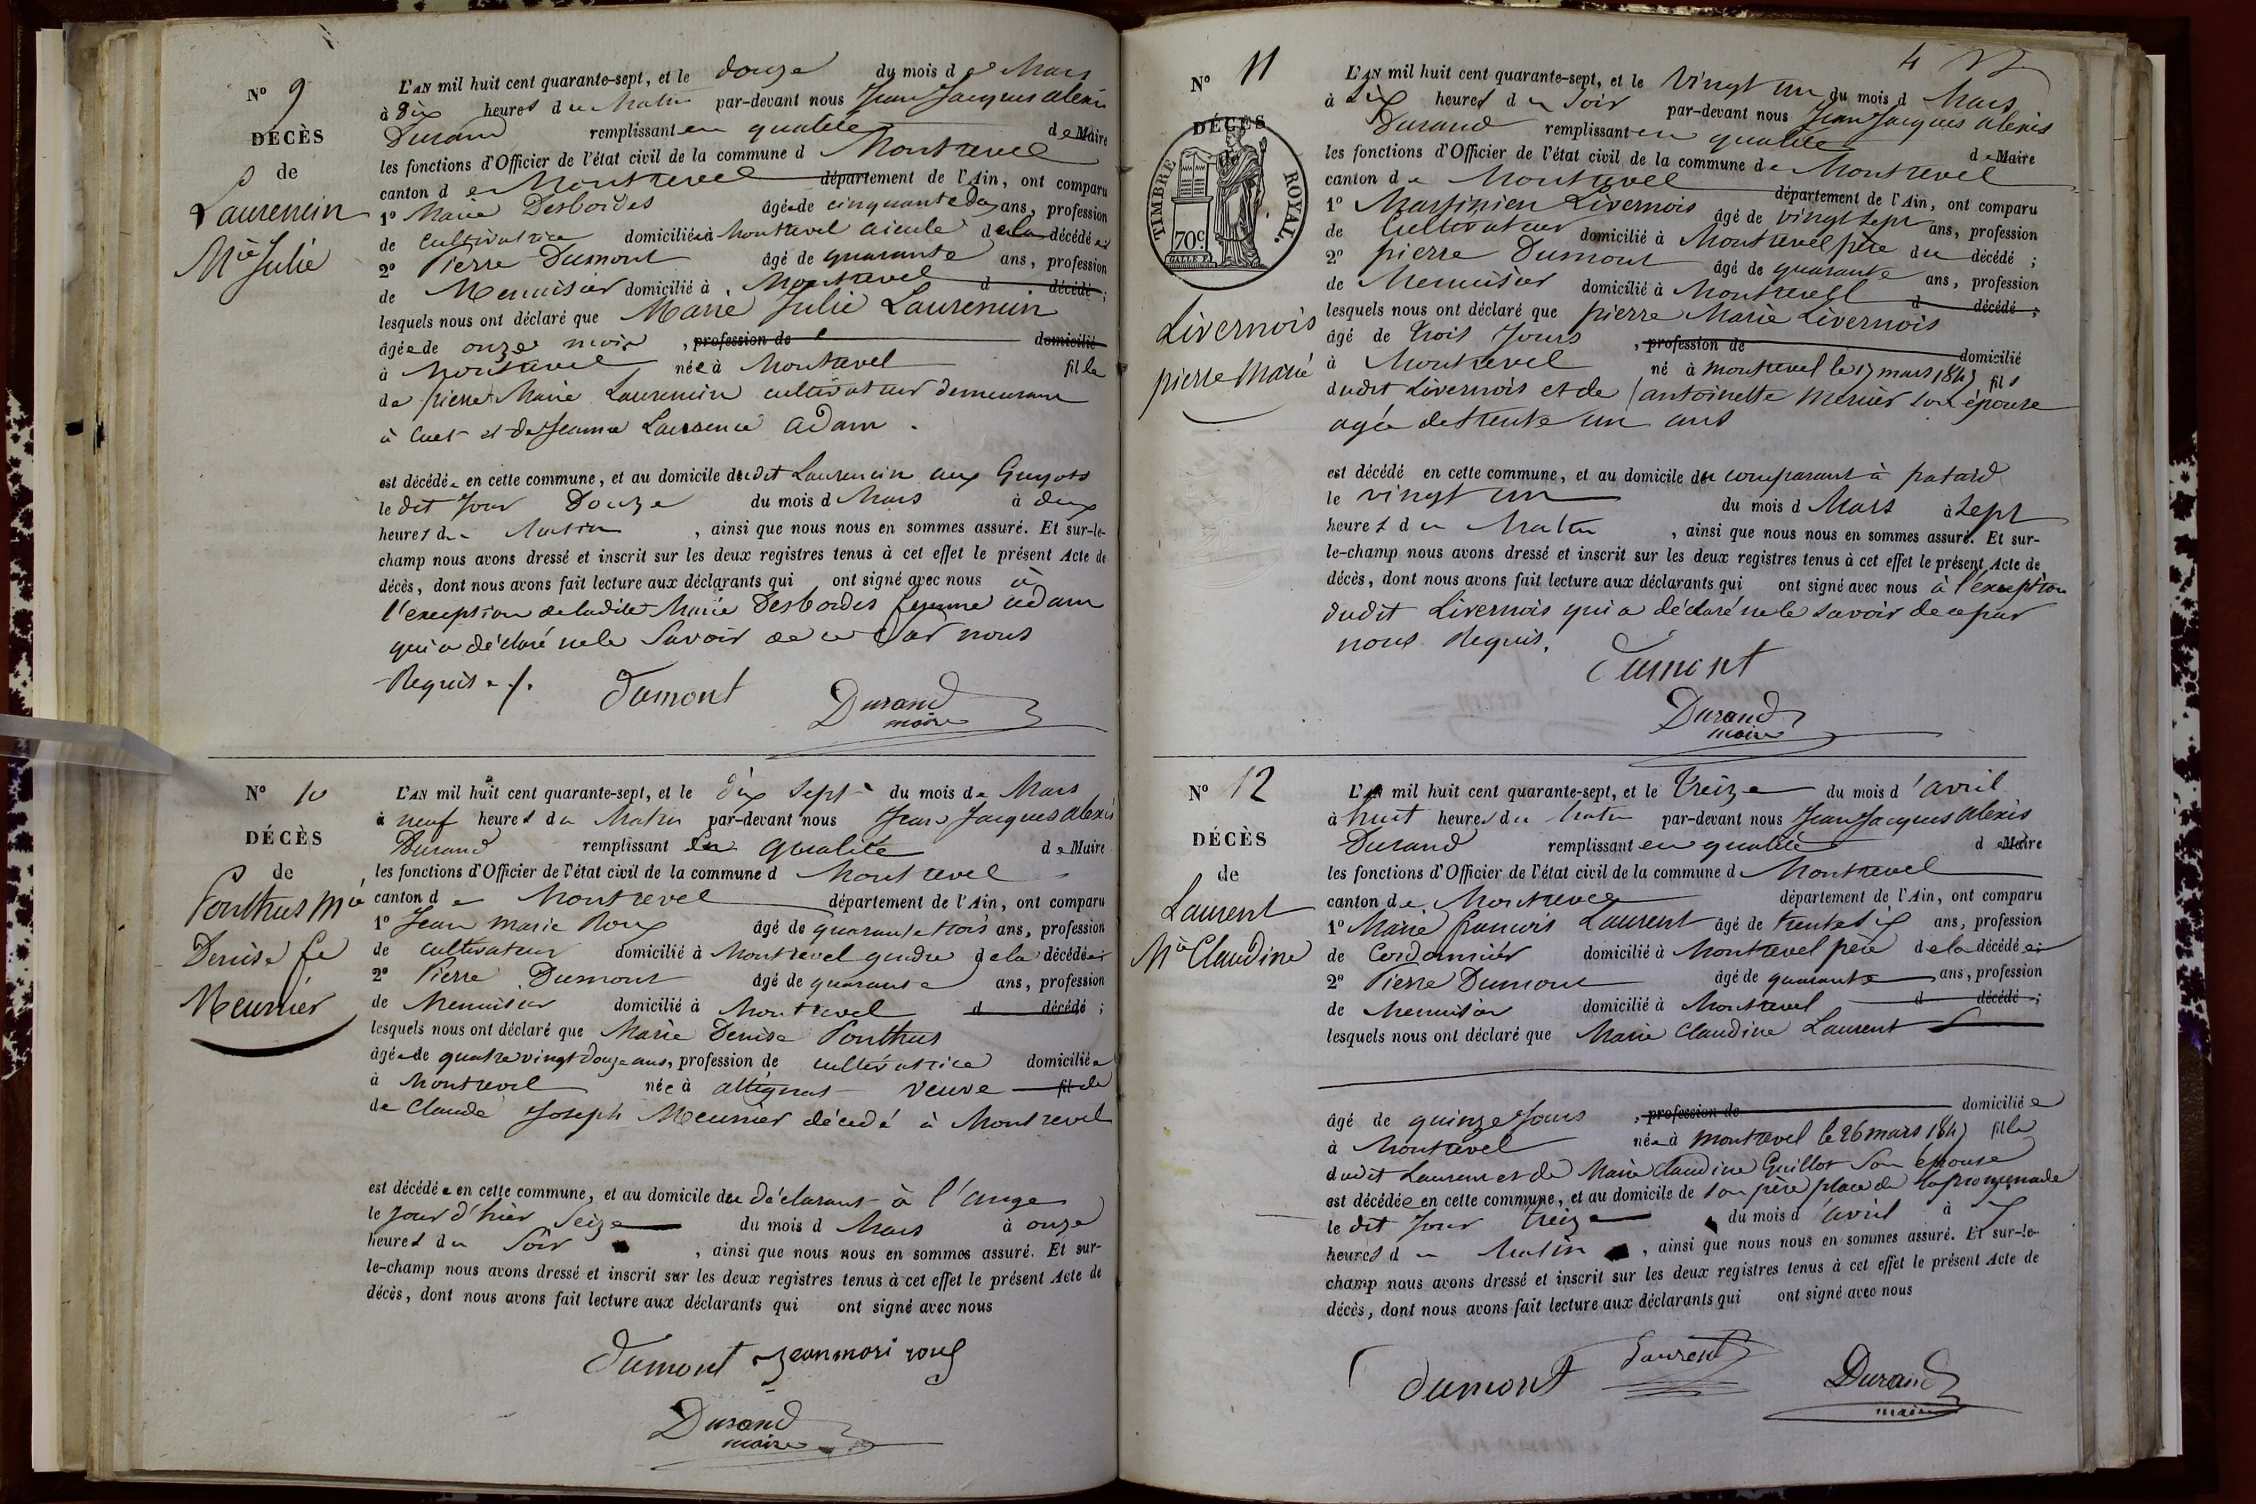 N° 9
DÉCÈS
de
Laurencin
Mie Julie
L'AN mil huit cent quarante-sept, et le douze du mois de Mars
à dix heures du Matin par-devant nous Jean Jacques alexis
Durand remplissant en qualité de Maire
les fonctions d'Officier de l'état civil de la commune d Montrevel
canton de Montrevel département de l'Ain, ont comparu
1° Marie Desbordes âgée de cinquante ans, profession
de cultivatrice domiciliée à Montrevel aieule de la décédée
2° Pierre Dumont âgé de quarante ans, profession
de Menuisier domicilié à Montrevel d décédé ;
lesquels nous ont déclaré que Marie Julie Laurencin
âgée de onze mois , profession de domicilié
à Montrevel née à Montrevel fille
de pierre Marie Laurencin cultivateur demeurant
à Cuet et de Jeanne Laurence adam .
est décédée en cette commune, et au domicile dudit Laurencin aux Guyots
le dit Jour Douze du mois d Mars à deux
heures du Matin , ainsi que nous nous en sommes assuré. Et sur-le-
champ nous avons dressé et inscrit sur les deux registres tenus à cet effet le présent Acte de
décès, dont nous avons fait lecture aux déclarants qui ont signé avec nous à
l'exception de ladite Marie Desbordes femme adam
qui a déclaré ne le Savoir de ce par nous
Requise ./.
Dumont Durand
maire
N° 10
DÉCÈS
de
Ponthus Mie
Denise fe
Meunier
L'AN mil huit cent quarante-sept, et le dix Sept du mois de Mars
à neuf heures du Matin par-devant nous Jean Jacques alexis
Durand remplissant En qualité de Maire
les fonctions d'Officier de l'état civil de la commune d Montrevel
canton de Montrevel département de l'Ain, ont comparu
1° Jean Marie Roux âgé de quarante trois ans, profession
de cultivateur domicilié à Montrevel gendre de la décédée
2° Pierre Dumont âgé de quarante ans, profession
de Menuisier domicilié à Montrevel d décédé ;
lesquels nous ont déclaré que Marie Denise Ponthus
âgée de quatrevingt douze ans, profession de cultivatrice domiciliée
à Montrevel née à attignat veuve fil de
de Claude Joseph Meunier décédé à Montrevel
est décédée en cette commune, et au domicile du déclarant à l'ange
le jour d'hier Seize du mois d Mars à onze
heures du Soir , ainsi que nous nous en sommes assuré. Et sur-
le-champ nous avons dressé et inscrit sur les deux registres tenus à cet effet le présent Acte de
décès, dont nous avons fait lecture aux déclarants qui ont signé avec nous
Dumont Jeanmari roux
Durand
maire
4
N° 11
DÉCÈS
TIMBRE ROYAL.
70c
Livernois
pierre Marie
L'AN mil huit cent quarante-sept, et le Vingt un du mois d Mars
à Six heures du Soir par-devant nous Jean Jacques alexis
Durand remplissant en qualité de Maire
les fonctions d'Officier de l'état civil de la commune de Montrevel
canton de Montrevel département de l'Ain, ont comparu
1° Martinien Livernois âgé de vingt sept ans, profession
de Cultivateur domicilié à Montrevel père du décédé ;
2° pierre Dumont âgé de quarante ans, profession
de Menuisier domicilié à Montrevel d décédé ;
lesquels nous ont déclaré que pierre Marie Livernois
âgé de trois Jours , profession de domicilié
à Montrevel né à montrevel le 17 mars 1847 fils
dudit Livernois et de antoinette Menier son épouse
agée de trente un ans
est décédé en cette commune, et au domicile du comparant à patard
le vingt un du mois d Mars à Sept
heures du Matin , ainsi que nous nous en sommes assuré. Et sur-
le-champ nous avons dressé et inscrit sur les deux registres tenus à cet effet le présent Acte de
décès, dont nous avons fait lecture aux déclarants qui ont signé avec nous à l'exception
dudit Livernois qui a déclaré ne le savoir de ce par
nous Requis.
Dumont
Durand
maire
N° 12
DÉCÈS
de
Laurent
Mie Claudine
L'AN mil huit cent quarante-sept, et le Treize du mois d'avril
à huit heures du Matin par-devant nous Jean Jacques Alexis
Durand remplissant en qualité de Maire
les fonctions d'Officier de l'état civil de la commune de Montrevel
canton de Montrevel département de l'Ain, ont comparu
1° Marie françois Laurent âgé de trente six ans, profession
de Cordonnier domicilié à Montrevel père de la décédée
2° Pierre Dumont âgé de quarante ans, profession
de Menuisier domicilié à Montrevel d décédé ;
lesquels nous ont déclaré que Marie Claudine Laurent
âgé de quinze Jours , profession de domiciliée
à Montrevel née à montrevel le 26 mars 1847 fille
dudit Laurent et de Marie Claudine Guillot Son epouse
est décédée en cette commune, et au domicile de son père place de la promenade
le dit Jour treize du mois d'avril à
heures du Matin , ainsi que nous nous en sommes assuré. Et sur-le-
champ nous avons dressé et inscrit sur les deux registres tenus à cet effet le présent Acte de
décès, dont nous avons fait lecture aux déclarants qui ont signé avec nous
Dumont Laurent Durand
maire